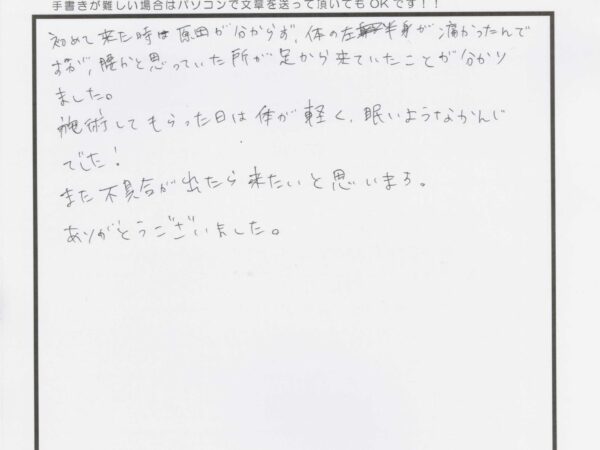 手書きが難しい場合はパソコンで文章を送って頂いてもOKです！！
初めて来た時は原因が分からず、体の左半身が痛かったんで
すが、腰かと思っていた所が足から来ていたことが分かり
ました。
施術してもらった日は体が軽く、眠いようなかんじ
でした！
また不具合が出たら来たいと思います。
ありがとうございました。